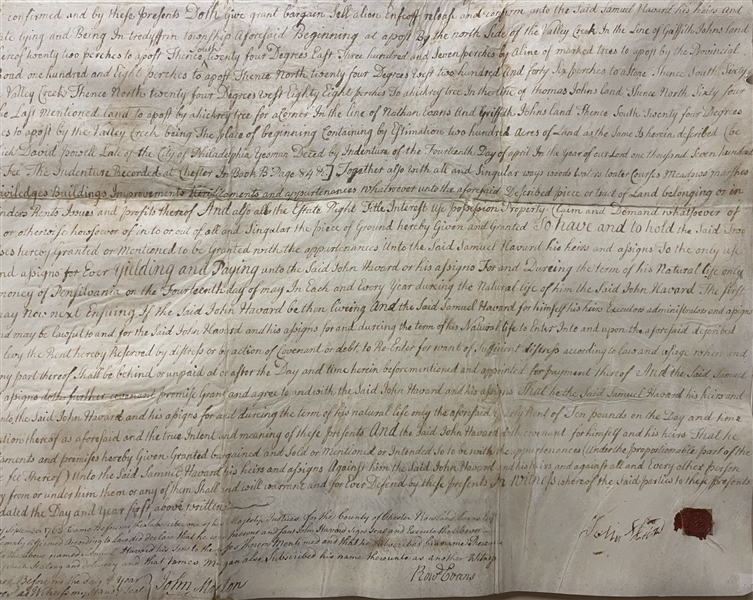 confirmed and by these Presents Doth Give grant bargain Sell alien Enfeoff release and confirm unto the Said Samuel Havard his heirs and
ate lying and Being In tredyffrin township Aforesaid Beginning at a post By the north Side of the Valley Creek In the Line of Griffith Johns land
hereof twenty two perches to a post Thence South twenty four Degrees East Three hundred and Seven perches by A line of marked trees to a post by the Provincial
road one hundred and Eight perches to a post Thence North twenty four Degrees West two hundred and forty Six perches to a Stone Thence South Sixty
Valley Creek Thence North twenty four Degrees west Eighty Eight perches To a hickrey tree In the line of thomas Johns land Thence North Sixty four
he Last Mentioned Land to a post by a hickrey tree for a Corner In the line of Nathan Evans And Griffith Johns land Thence South twenty four Degrees
es to a post by the Valley Creek being The place of Beginning Containing by Estimation two hundred Acres of Land as the Same Is herein described (be
ch David powell Late of the City of Philadelphia Yeoman Deced by Indenture of the Fourteenth Day of april In the Year of our Lord one thousand Seven hundred
Fee The Indenture Recorded at Chester In Book B Page 848 Together also with all and Singular ways woods waters water Courses Meadows marshes
priviledges Buildings Improvements hereditaments and appurtenances whatsoever unto the aforesaid Described piece or tract of Land belonging or in
inders Rents Issues and profits thereof And also all the Estate Right Title Interest Use possession Property Claim and Demand whatsoever of
or otherwise howsoever of in to or out of all and Singular the piece of Ground hereby Given and Granted To have and to hold the Said
ses hereby Granted or Mentioned to be Granted with the appurtenances Unto the Said Samuel Havard his heirs and assigns To the only use
nd assigns for Ever Yielding and Paying unto the Said John Havard or his assigns For and Dureing the term of his Natural life only
money of Pensilvania on the Fourteenth day of may In Each and Every Year during the Natural life of him the Said John Havard The first
ay Now next Ensuing If the Said John Havard be then liveing And the Said Samuel Havard for himself his heirs Executors administrators and assigns
nd may be lawful to and for the Said John Havard and his assigns for and dureing the term of his Natural life to Enter Into and upon the aforesaid described
levy the Rent hereby Reserved by distress or by action of Covenant or debt to Re-Enter for want of Sufficient distress according to Law and usage when and
ny part thereof Shall be behind or unpaid at or after the Day and time herein beforementioned and appointed for payment thereof And the Said Samuel
assigns doth further covenant promise Grant and agree to and with the Said John Havard and his assigns That he the Said Samuel Havard his heirs and
nto the Said John Havard and his assigns for and dureing the term of his natural life only the aforesaid yearly Rent of Ten pounds on the Day and time
sion thereof as aforesaid and the true Intent and meaning of these presents And the Said John Havard doth covenant for himself and his heirs That he
taments and premises hereby Given Granted bargained and Sold or Mentioned or Intended So to be with the appurtenances (Under the proportionable part of the
r fee thereof) Unto the Said Samuel Havard his heirs and assigns Against him the Said John Havard and his heirs and against all and Every other person
y from or under him them or any of them Shall and will warrant and for Ever Defend by these presents In Witness whereof the Said parties to these presents
dated the Day and Year first above written
1763 Came Before me the Subscriber one of his Majestys Justices for the County of Chester Rowland Evans
according to Law did declare that he was present and Saw John Havard Sign Seal and Execute the above
Havard his Son to the Use therein Mentioned and that he Subscribed his name Thereunto
Sealing and delivery and that James Morgan also Subscribed his name thereunto as another Witness
Before me the day & Year
as Witness my Hand & Seal John Morton
Rowd Evans
John